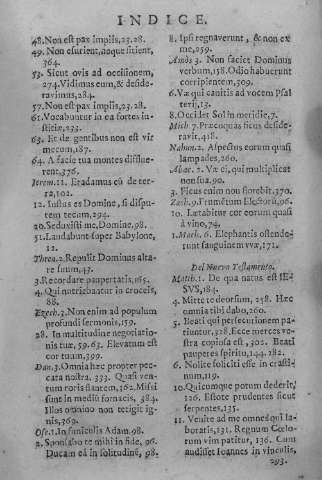 INDICE.
48. Non est pax impiis, 23. 28.
49. Non esurient, neque sitient,
364.
53. Sicut ovis ad occisionem,
274. Vidimus eum, & deside-
ravimus, 284.
57. Non est pax impiis, 23. 28.
61. Vocabuntur in ea fortes in-
stitiæ, 233.
63. Et de gentibus non est vir
mecum, 187.
64. A facie tua montes disflue-
rent, 376.
Jerem. 11. Eradamus eū de ter-
ra, 102.
12. Iustus es Domine, si dispu-
tem tecum, 294.
20. Seduxisti me, Domine, 98.
51. Laudabunt super Babylone,
12.
Thren. 2. Repulit Dominus alta-
re suum, 43.
3. Recordare paupertatis, 165.
4. Qui nutriebātur in croceis,
88.
Ezech. 3. Non enim ad populum
profundi sermonis, 159.
28. In multitudine negotiatio-
nis tuæ, 59. 63. Elevatum est
cor tuum, 399.
Dan. 3. Omnia hæc propter pec-
cata nostra. 333. Quasi ven-
tum roris flantem, 362. Missi
sunt in mediū fornacis, 384.
Illos omnino non tetigit ig-
nis, 369.
Ose. 1. In funiculis Adam, 98.
2. Sponsabo te mihi in fide, 96.
Ducam eā in solitudinē, 98.
8. Ipsi regnaverunt, & non ex
me, 259.
Amos 3. Non faciet Dominus
verbum, 158. Odio habuerunt
corripientem, 309.
6. Væ qui canitis ad vocem Psal
terij, 13.
8. Occidet Sol in meridie, 7.
Mich. 7. Præcoquas ficus deside-
ravit, 418.
Nahum. 2. Aspectus eorum quasi
lampades, 260.
Abac. 2. Væ ei, qui multiplicat
non sua, 90.
3. Ficus enim non florebit, 370.
Zach. 9. Frumētum Electorū, 96.
10. Lætabitur cor eorum quasi
à vino, 74.
1. Mach. 6. Elephantis ostende-
runt sanguinem uvæ, 171.
Del Nuevo Testamento.
Matth. 1. De qua natus est IE-
SVS, 184.
4. Mitte te deorsum, 258. Hæc
omnia tibi dabo, 260.
5. Beati qui persecutionem pa-
tiuntur, 328. Ecce merces ve-
stra copiosa est, 302. Beati
pauperes spiritu, 144. 282.
6. Nolite soliciti esse in crasti-
num, 119.
10. Quicomque potum dederit,
126. Estote prudentes sicut
serpentes, 135.
11. Venite ad me omnes qui la-
boratis, 131. Regnum Cœlo-
rum vim patitur, 136. Cum
audisset Ioannes in vinculis,
293.